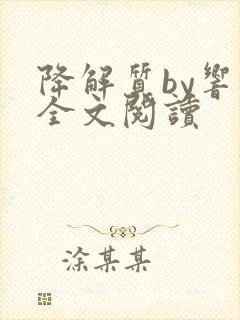 降解質by響
全文閱讀
涂某某